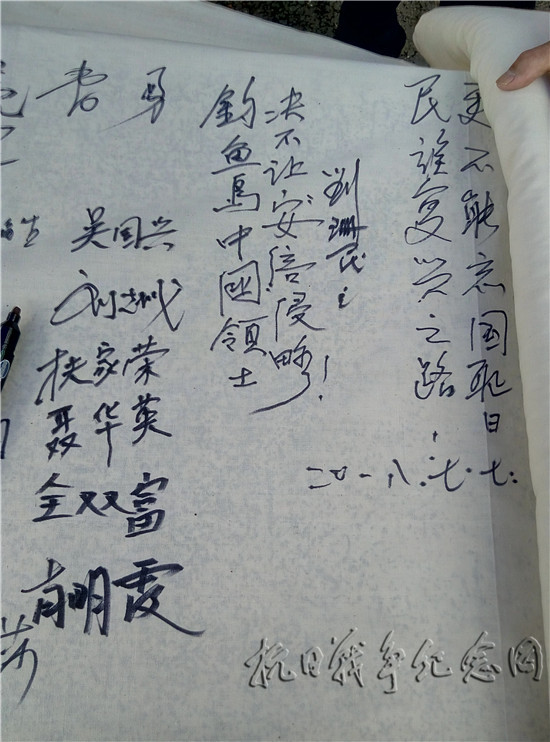 更不能忘国耻日
民族复兴之路，
二〇一八.七.七.
决不让安倍侵略！
釣鱼島中國領土
吴国兴
扶家荣
聂华英
全双富
肖明霞
抗日战争纪念网